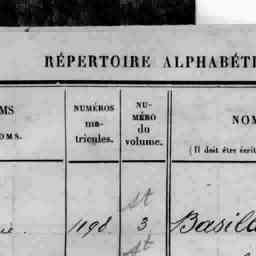 RÉPERTOIRE ALPHABÉTI
MS
OMS.
NUMÉROS
ma-
tricules.
NU-
MÉRO
du
volume.
NOM
(Il doit être écrit
st
1198
3
Basila
st